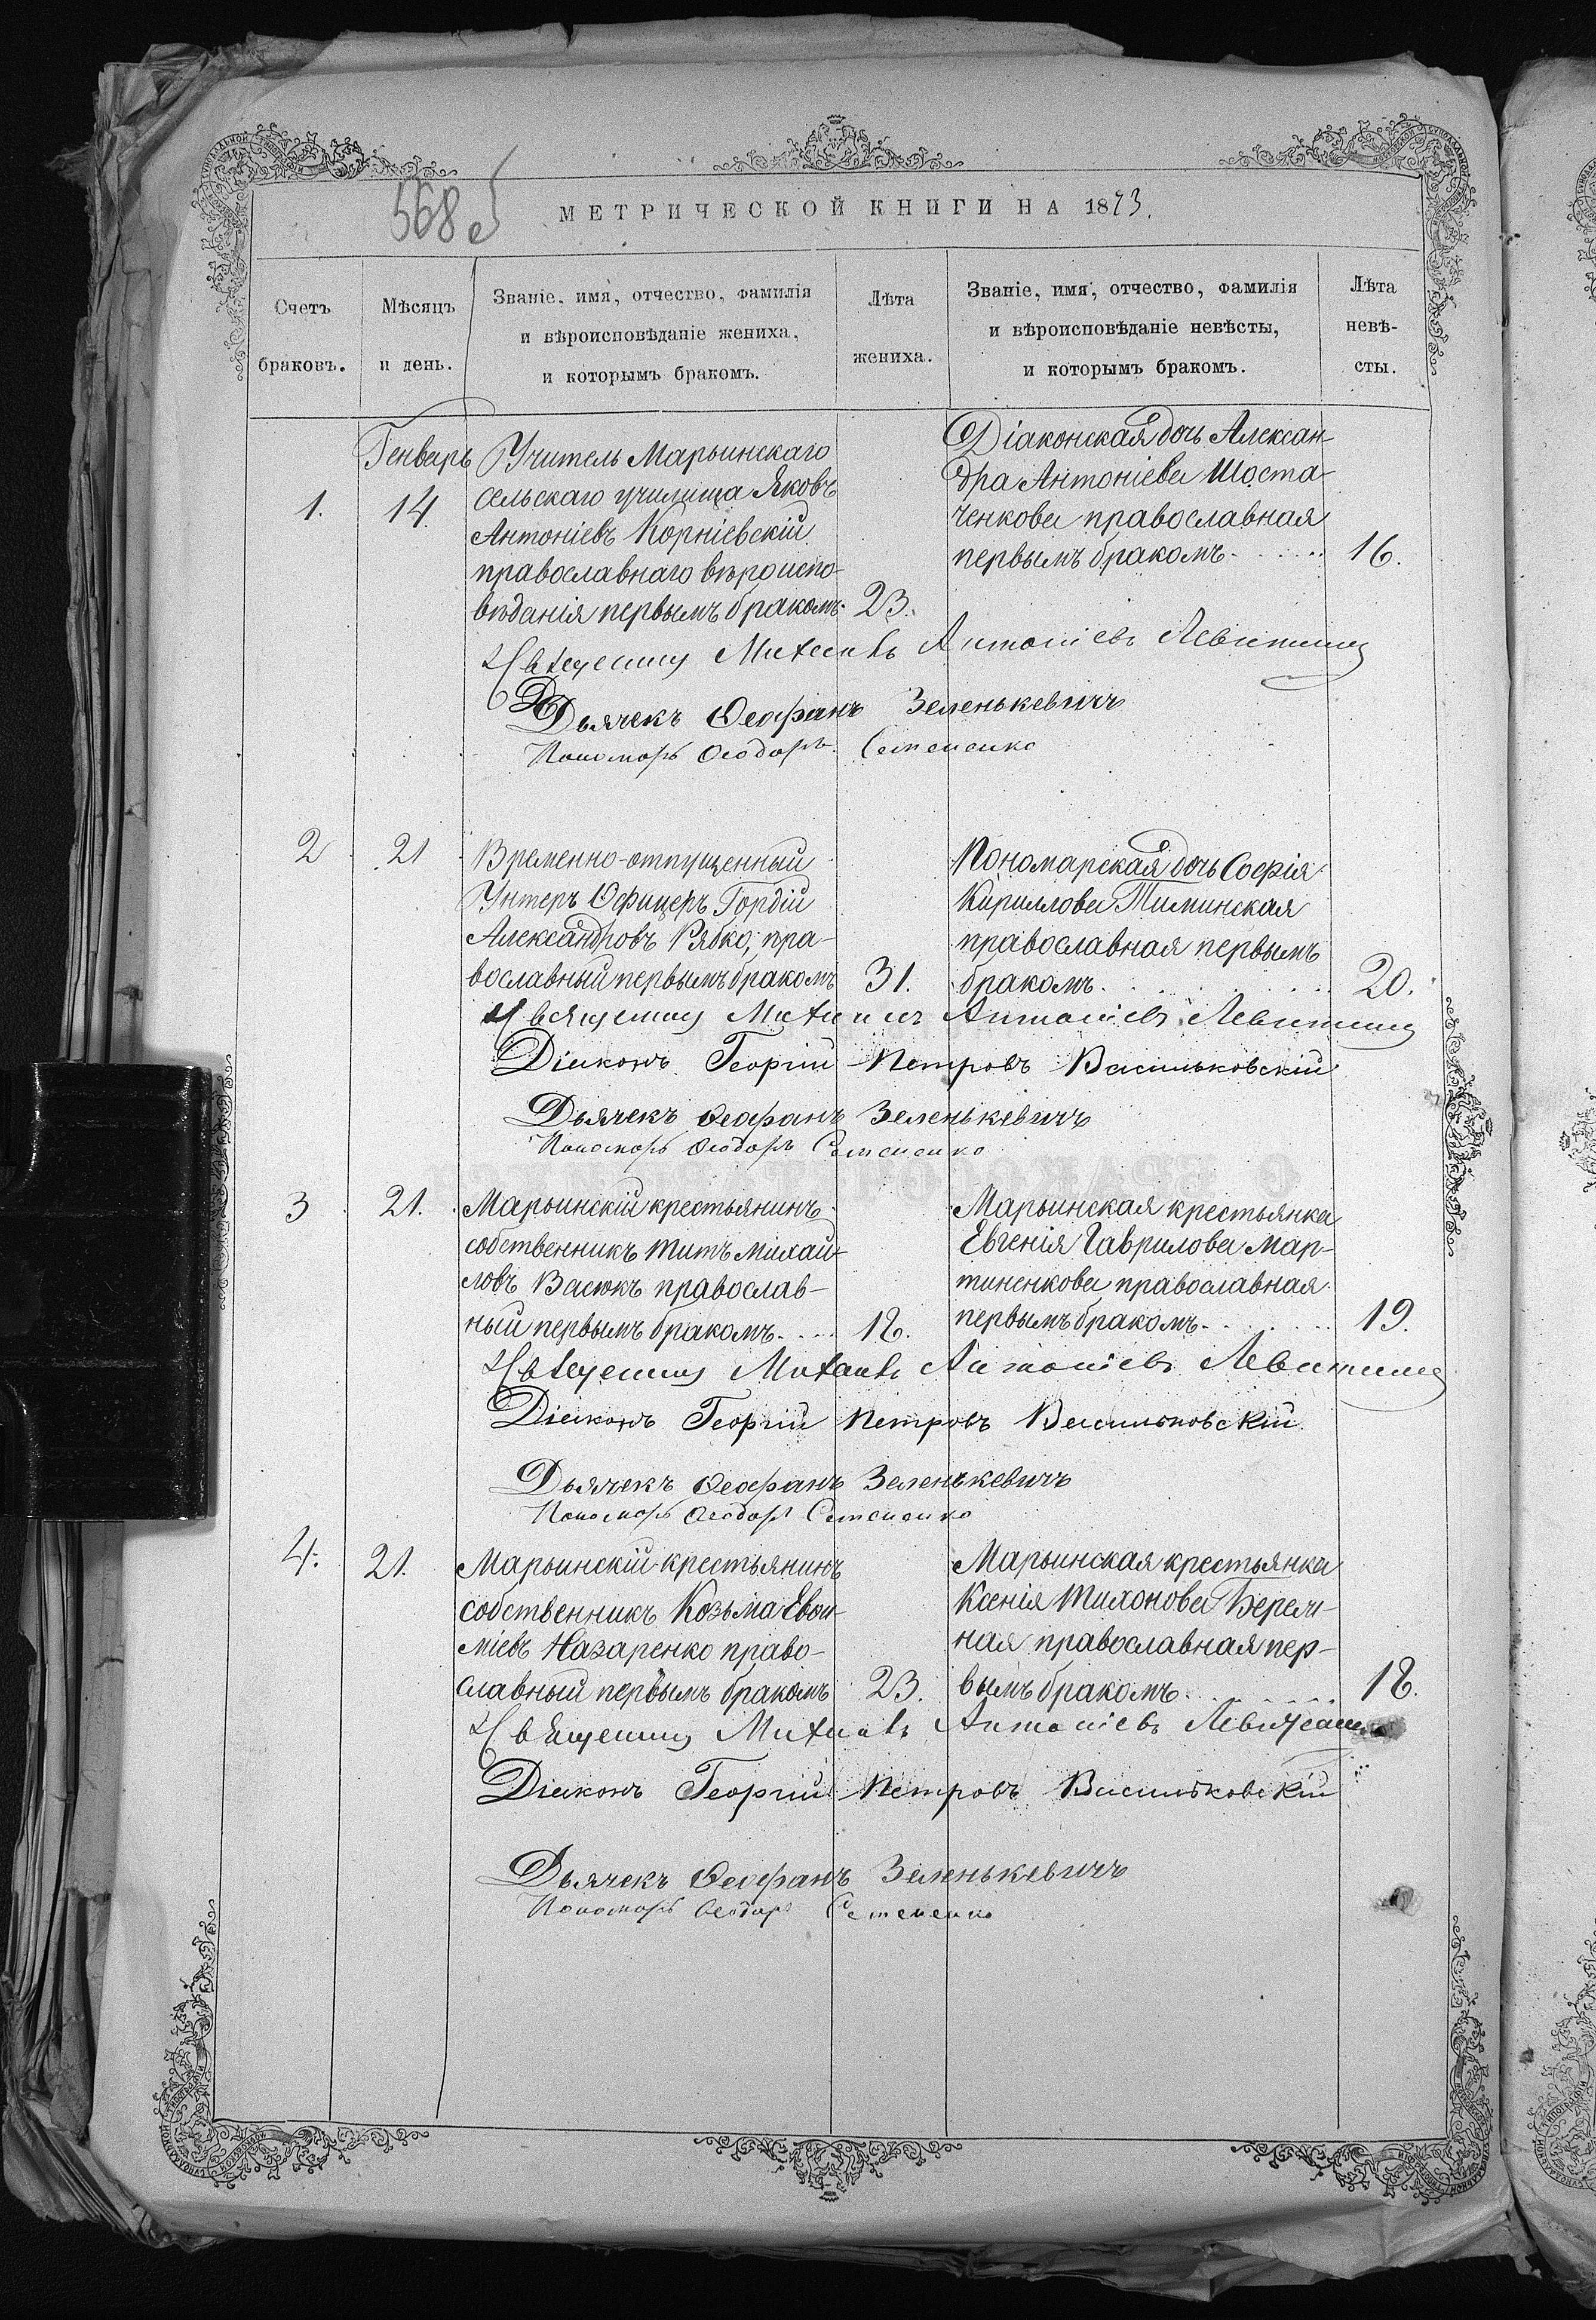 568
МЕТРИЧЕСКОЙ КНИГИ НА 1873.
Счетъ браковъ.
Мѣсяцъ и день.
Званіе, имя, отчество, фамилія
и вѣроисповѣданіе жениха,
и которымъ бракомъ.
Лѣта жениха.
Званіе, имя, отчество, фамилія
и вѣроисповѣданіе невѣсты,
и которымъ бракомъ.
Лѣта невѣ-
сты.
1.
Генварь
14.
Учитель Марьинскаго
сельскаго училища Яковъ
Антоніевъ Корніевскій
православнаго вѣроиспо-
вѣданія первымъ бракомъ. 23.
Діаконская дочь Алексан-
дра Антоніева Шоста-
ченкова православная
первымъ бракомъ. 16.
Священникъ Михаилъ Антоніевъ
Дьячекъ Ѳеофанъ Зеленькевичъ
Пономарь Ѳеодоръ
2
21
Временно-отпущенный
Унтеръ Офицеръ Гордій
Александровъ Рябко, пра-
вославный первымъ бракомъ 31.
Пономарская дочь Софія
Кириллова Тиминская
православная первымъ
бракомъ. 20.
Священникъ Михаилъ Антоніевъ
Діаконъ Георгій Петровъ Васильковскій
Дьячекъ Ѳеофанъ Зеленькевичъ
Пономарь Ѳеодоръ
3
21.
Марьинскій крестьянинъ
собственникъ Титъ Михай-
ловъ Васюкъ православ-
ный первымъ бракомъ. 18.
Марьинская крестьянка
Евгенія Гаврилова Мар-
тиненкова православная
первымъ бракомъ. 19.
Священникъ Михаилъ Антоніевъ
Діаконъ Георгій Петровъ Васильковскій
Дьячекъ Ѳеофанъ Зеленькевичъ
Пономарь Ѳеодоръ
4.
21.
Марьинскій крестьянинъ
собственникъ Козьма Евѳи-
міевъ Назаренко право-
славный первымъ бракомъ 23.
Марьинская крестьянка
Ксенія Тихонова Берем-
ная православная пер-
вымъ бракомъ. 18.
Священникъ Михаилъ Антоніевъ
Діаконъ Георгій Петровъ Васильковскій
Дьячекъ Ѳеофанъ Зеленькевичъ
Пономарь Ѳеодоръ